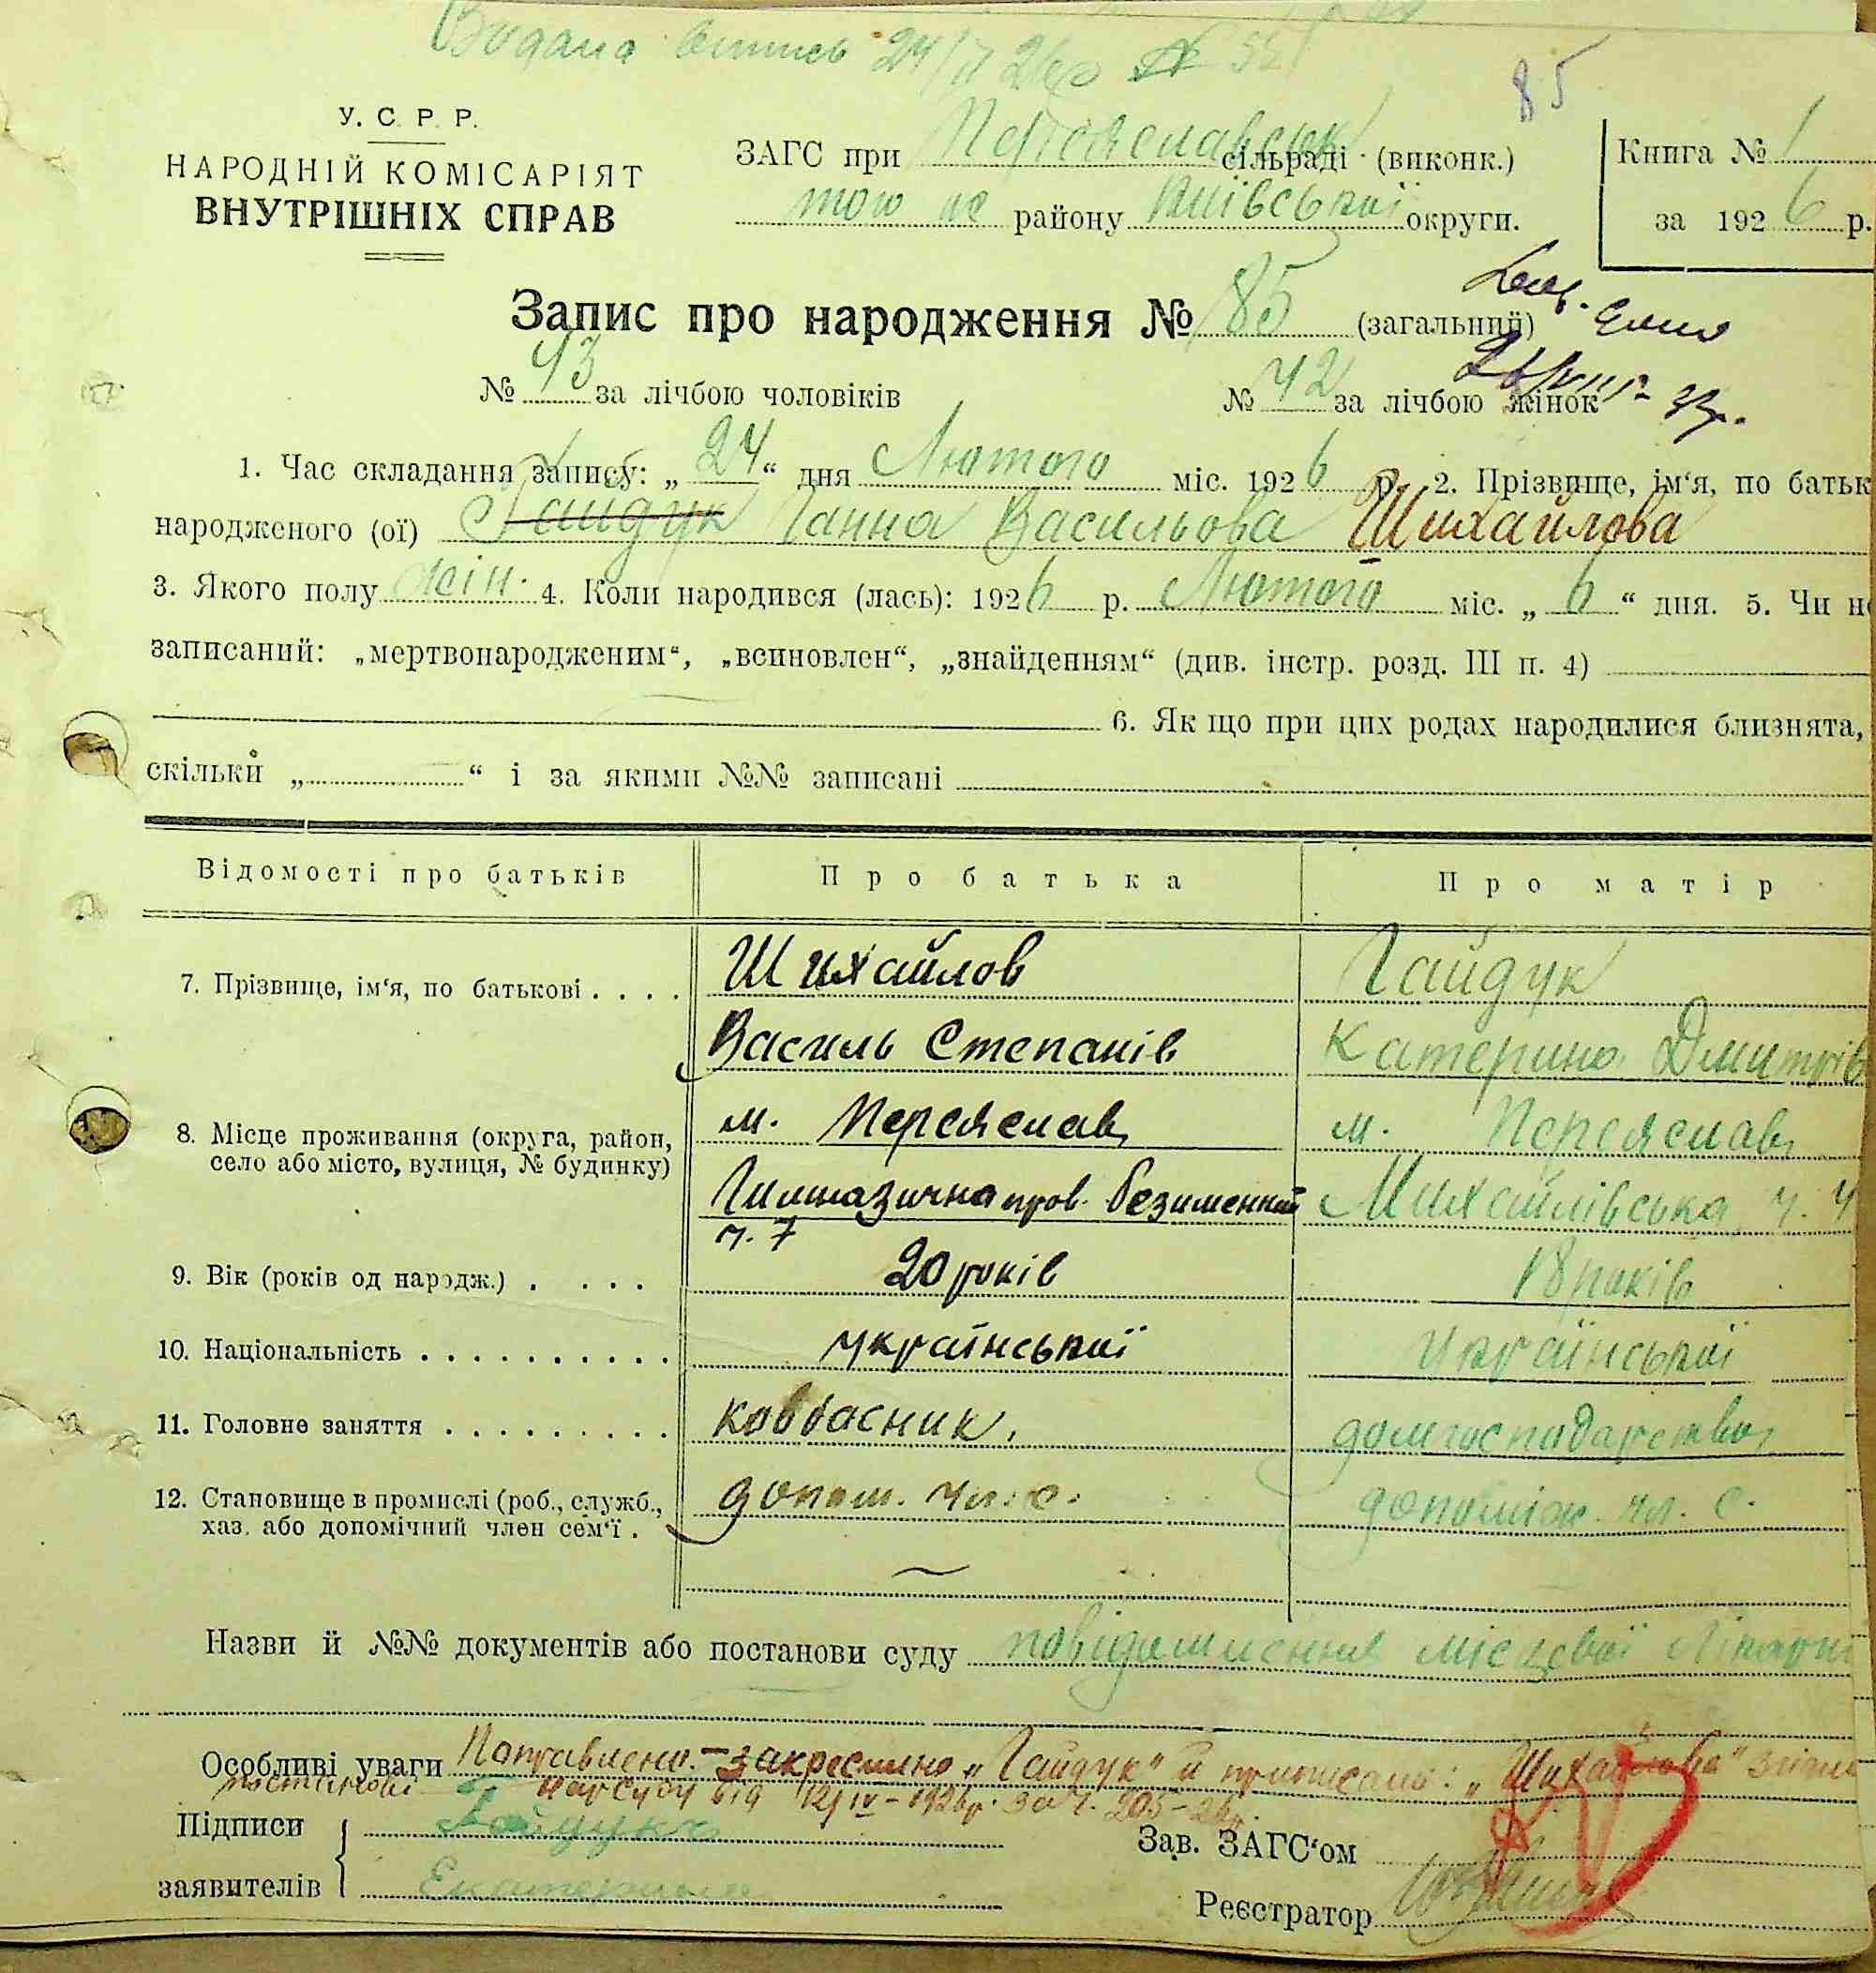 24/II 26р №
85
У. С. Р. Р.
НАРОДНІЙ КОМІСАРІЯТ
ВНУТРІШНІХ СПРАВ
ЗАГС при Переяславськ сільраді (виконк.)
того ж району Київської округи.
Книга № 1
за 1926 р.
Запис про народження № 85 (загальний)
№ 43 за лічбою чоловіків
№ 42 за лічбою жінок
1. Час складання запису: „ 24 “ дня Лютого міс. 1926 р. 2. Прізвище, ім‘я, по батьк
народженого (ої) Гайдук Ганна Васильова Шихайлова
3. Якого полу жін. 4. Коли народився (лась): 1926 р. Лютого міс. „ 6 “ дня. 5. Чи не
записаний: „мертвонародженим“, „всиновлен“, „знайденням“ (див. інстр. розд. III п. 4)
6. Як що при цих родах народилися близнята,
скільки „ “ і за якими №№ записані
Відомості про батьків
Про батька
Про матір
7. Прізвище, ім‘я, по батькові
Шихайлов
Гайдук
Василь Степанів
Катерина Дмитрів
8. Місце проживання (округа, район,
село або місто, вулиця, № будинку)
м. Переяслав
м. Переяслав
Гимназична пров. безименний
ч. 7
Михайлівська ч. 4
9. Вік (років од народж.)
20 років
18 років
10. Національність
української
української
11. Головне заняття
ковбасник.
домгосподарство
12. Становище в промислі (роб., служб.,
хаз. або допомічний член сем‘ї
допом. чл. с.
допоміж. чл. с.
Назви й №№ документів або постанови суду повідомлення місцевої Лікарні
Особливі уваги Поправлено.- закреслено „Гайдук“ й приписано: „Шихайлова“ згідно
постанови Нарсуду від 12/IV-1926р. за ч. 205-26р.
Підписи
заявителів
Гайдук
Екатерина
Зав. ЗАГС‘ом
Реєстратор